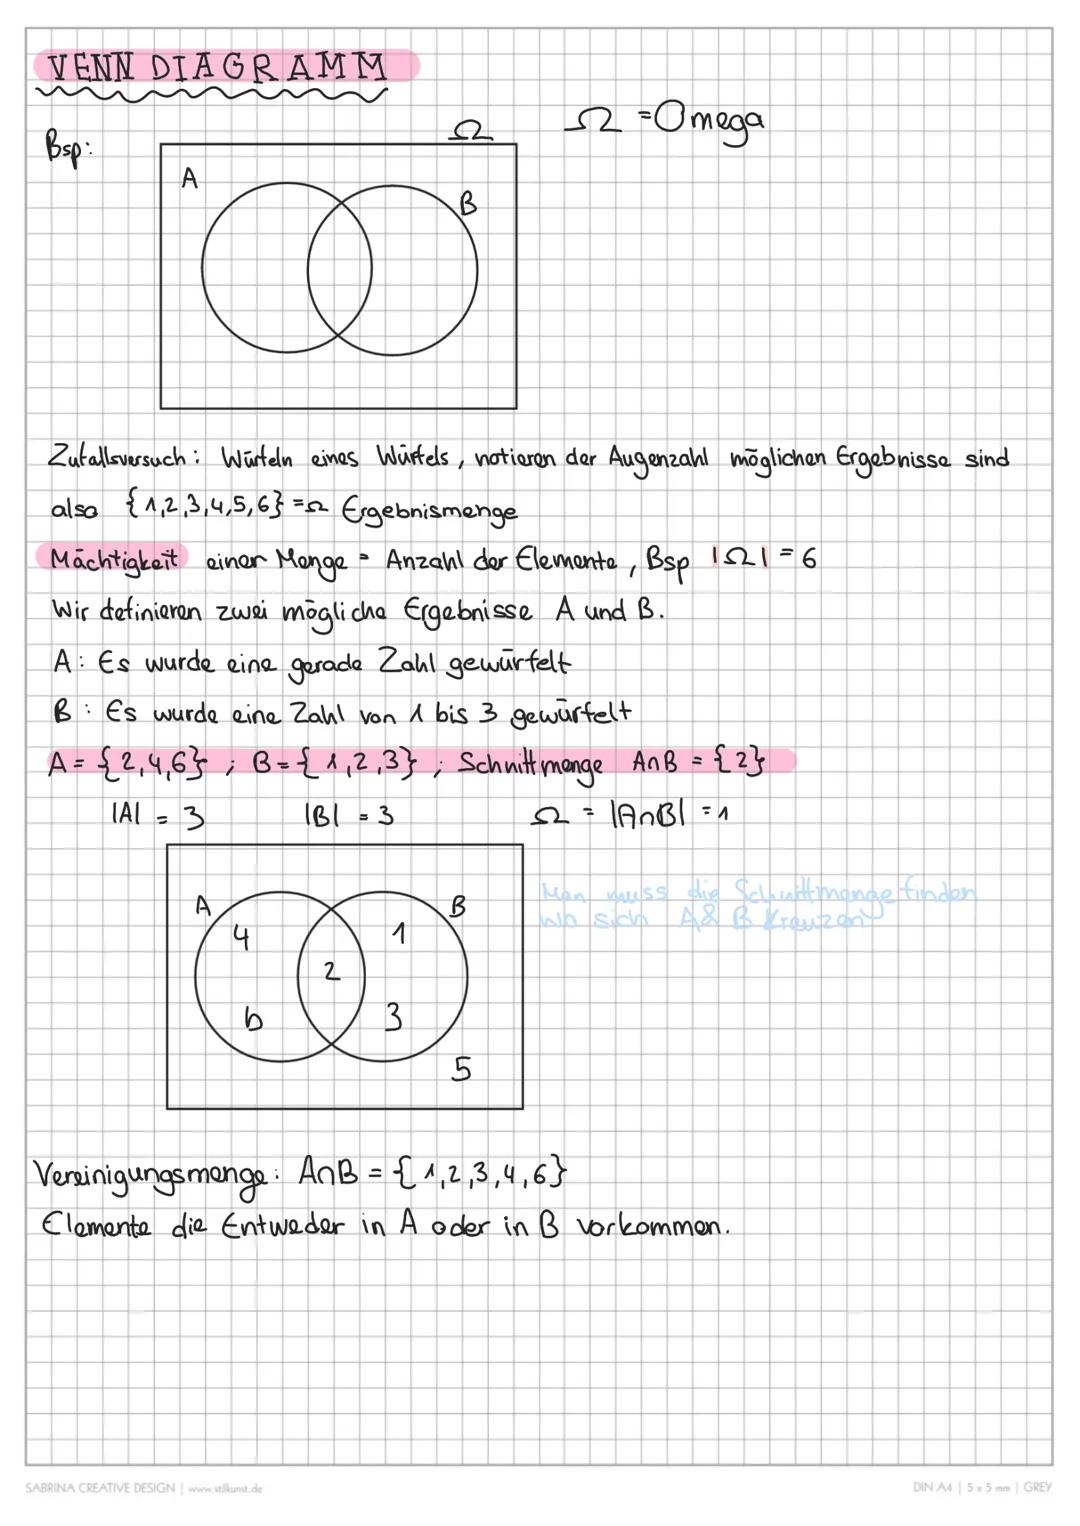 VENN DIAGRAMM
Ω = Omega
Bsp:
Ω
A
B
Zufallsversuch: Würfeln eines Würfels, notieren der Augenzahl möglichen Ergebnisse sind
also {1,2,3,4,5,6} = Ω Ergebnismenge
Mächtigkeit einer Menge = Anzahl der Elemente, Bsp |Ω| = 6
Wir definieren zwei mögliche Ergebnisse A und B.
A: Es wurde eine gerade Zahl gewürfelt
B: Es wurde eine Zahl von 1 bis 3 gewürfelt
A = {2,4,6} ; B = {1,2,3} ; Schnittmenge A∩B = {2}
|A| = 3 |B| = 3 Ω = |A∩B| = 1
Man muss die Schnittmenge finden
wo sich A & B Kreuzen
A
B
4
1
2
6
3
5
Vereinigungsmenge: A∩B = {1,2,3,4,6}
Elemente die Entweder in A oder in B vorkommen.
SABRINA CREATIVE DESIGN | www.stilkunst.de
DIN A4 | 5 x 5 mm | GREY